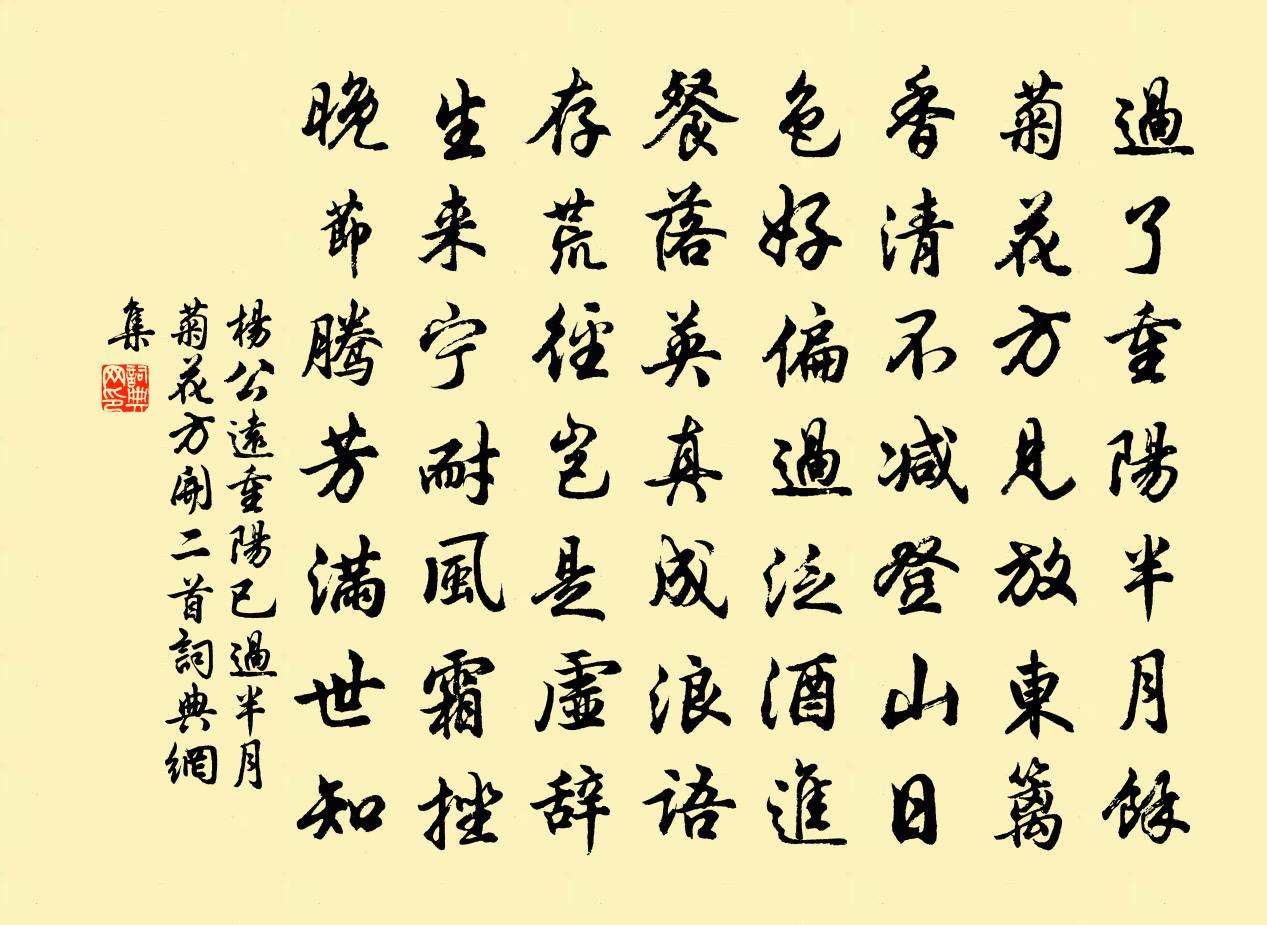 過了重陽半月餘
菊花方見放東籬
香清不减登山日
色好偏過泛酒進
餐落英真成浪語
存荒徑豈是虛辞
生来宁耐風霜挫
晚節騰芳滿世知
楊公遠重陽已過半月
菊花方開二首詞典網
集
詞典
网印